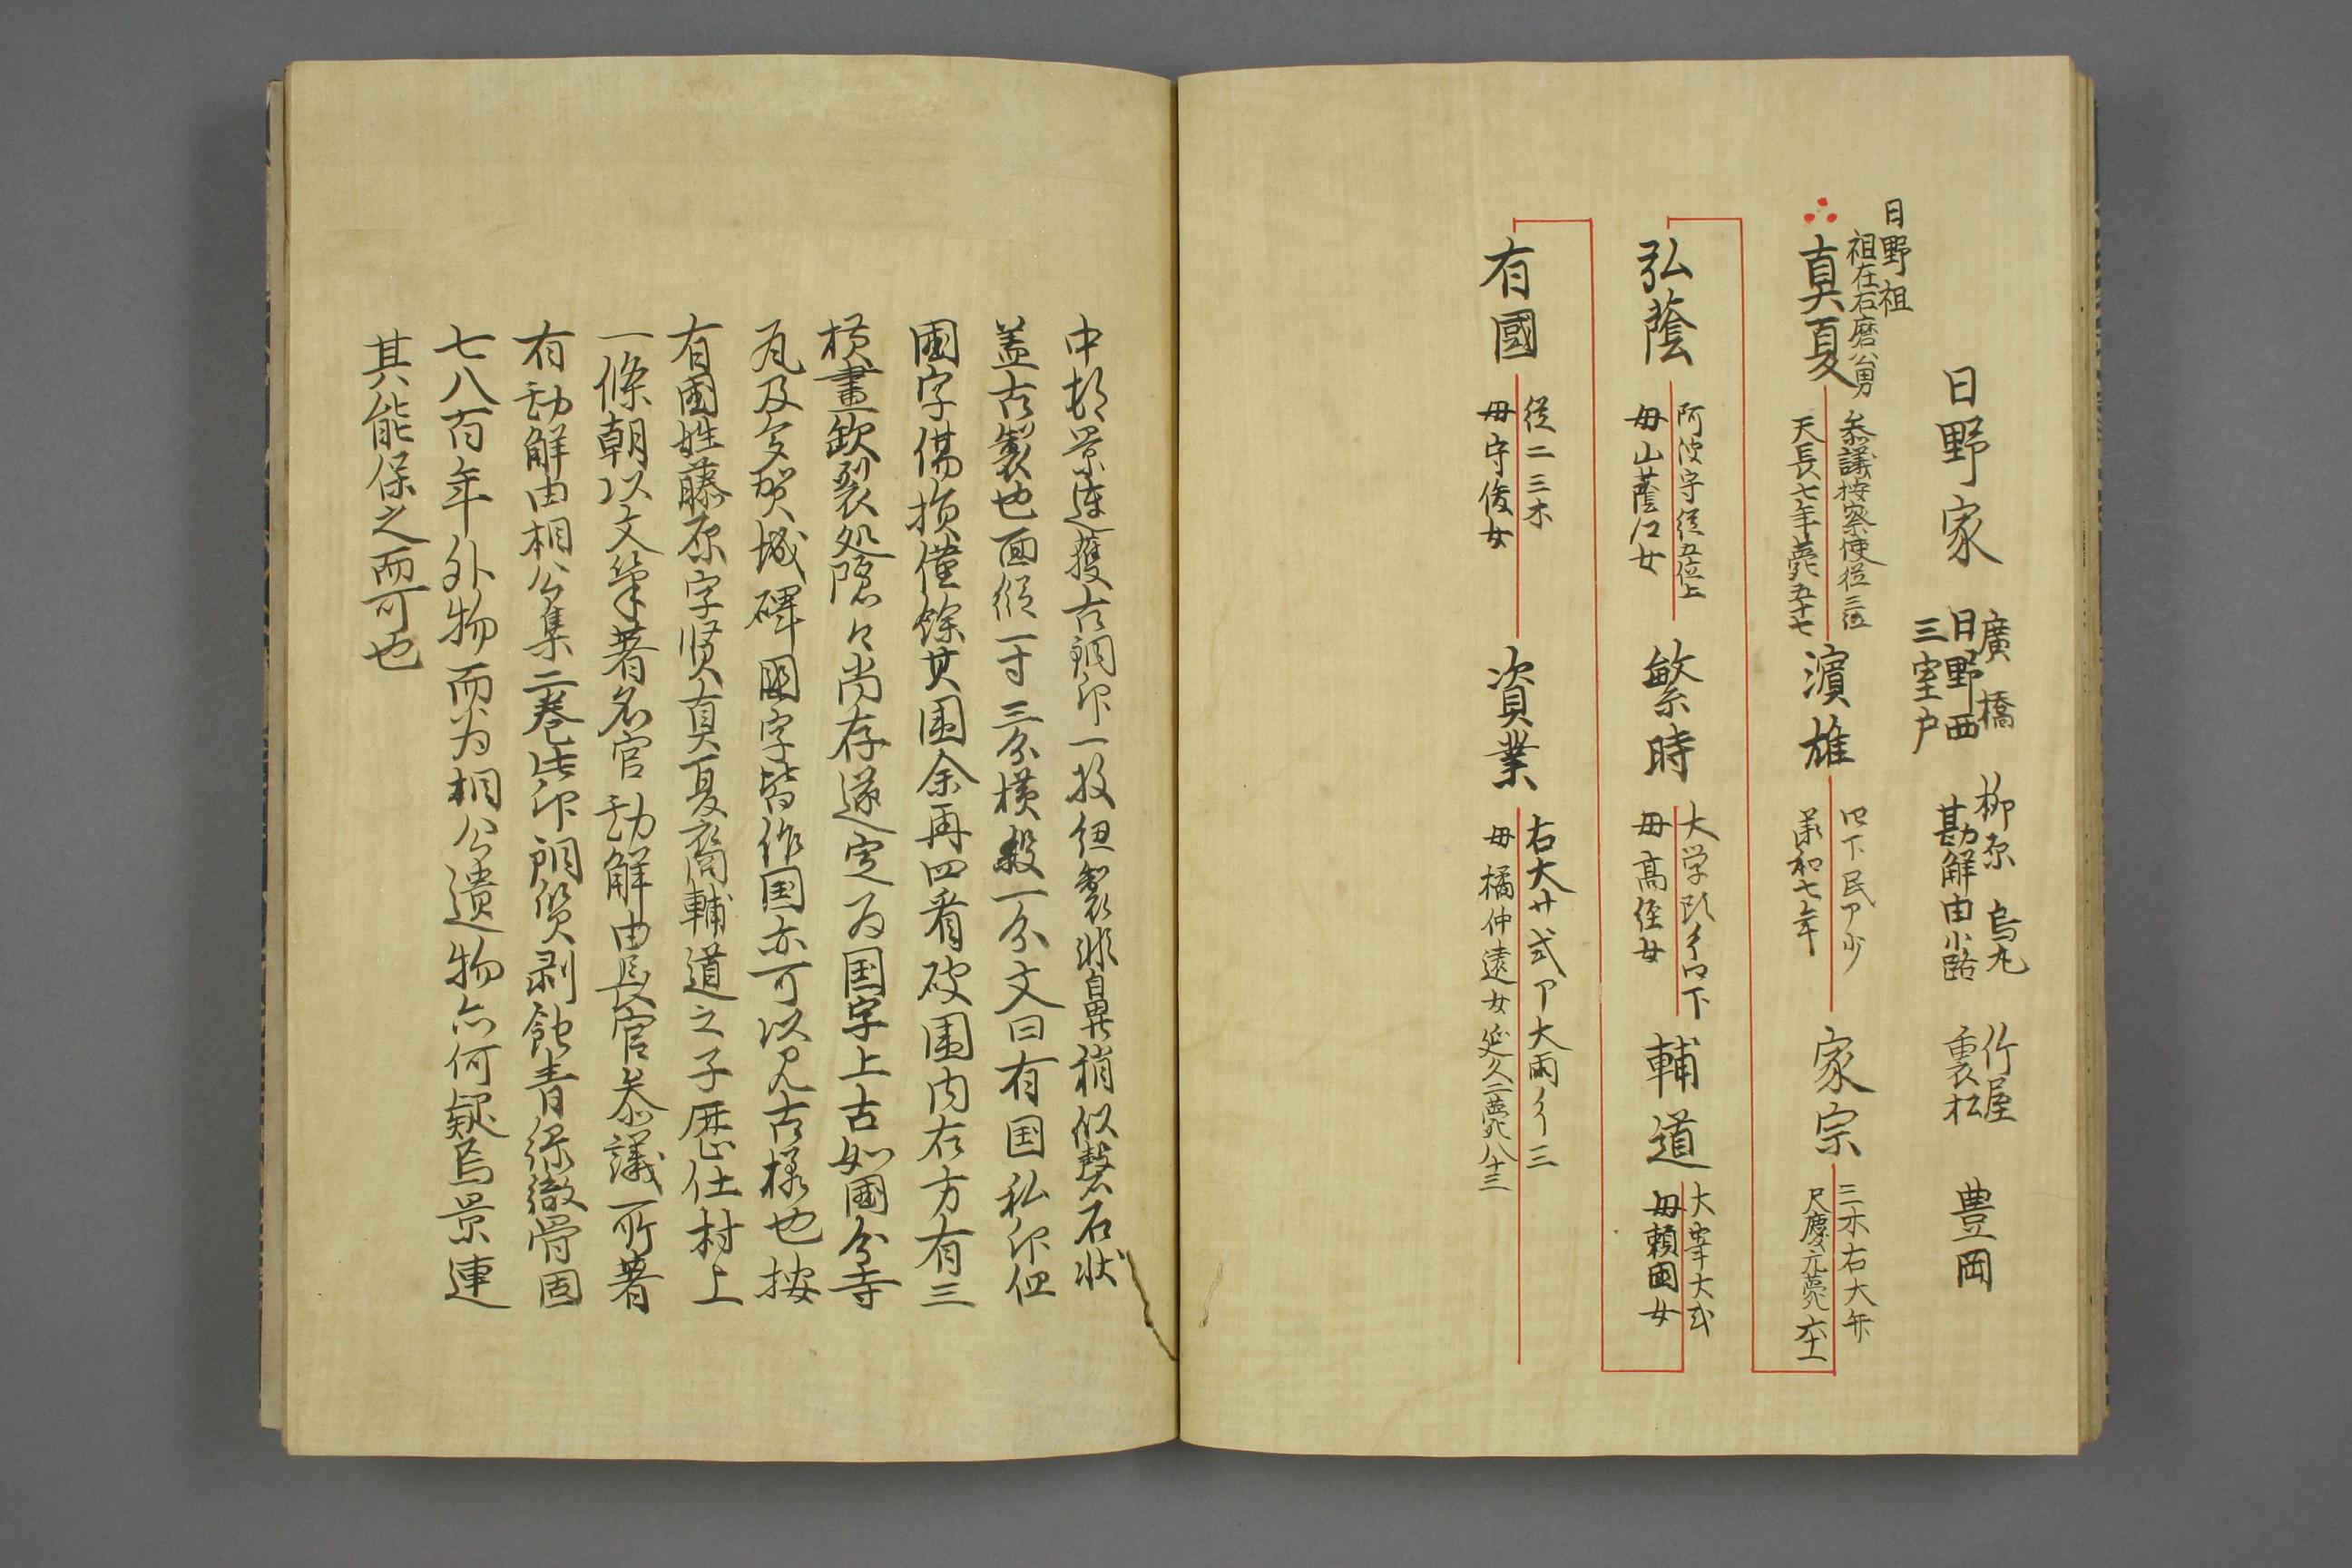 日野家
廣橋 柳原 烏丸 竹屋
日野西 勘解由小路 裏松 豊岡
三室戸
日野祖
祖在石磨公男
真夏
参議按察使従三位
天長七年薨五十七
濱雄
四下民ア少
承和七年
家宗
三木右大弁
慶元薨六十一
弘蔭
阿波守従五位上
母山蔭口女
繁時
大学頭イ四下
母高経女
輔道
大宰大弐
母頼國女
有國
従二三木
母守俊女
資業
右大廾式ア大兩イ三
母橘仲遠女延久二薨八十三
中村景連獲古銅印一枚但製非鼻稍似磬石状
盖古製也面縦一寸三分横殺一分文曰有国私印但
國字傷損僅餘其囲余再四看破囲内右方有三
横畫欽裂処隠々尚存遂定為国字上古如國分寺
瓦及多賀城碑國字皆作国亦可以見古様也按
有國姓藤原字賢真夏裔輔道之子歴仕村上
一條朝以文筆著名官勘解由長官参議所著
有勘解由相公集二巻此印銅質剥蝕青緑徹骨固
七八百年外物而为相公遺物亦何疑焉景連
其能保之而可也